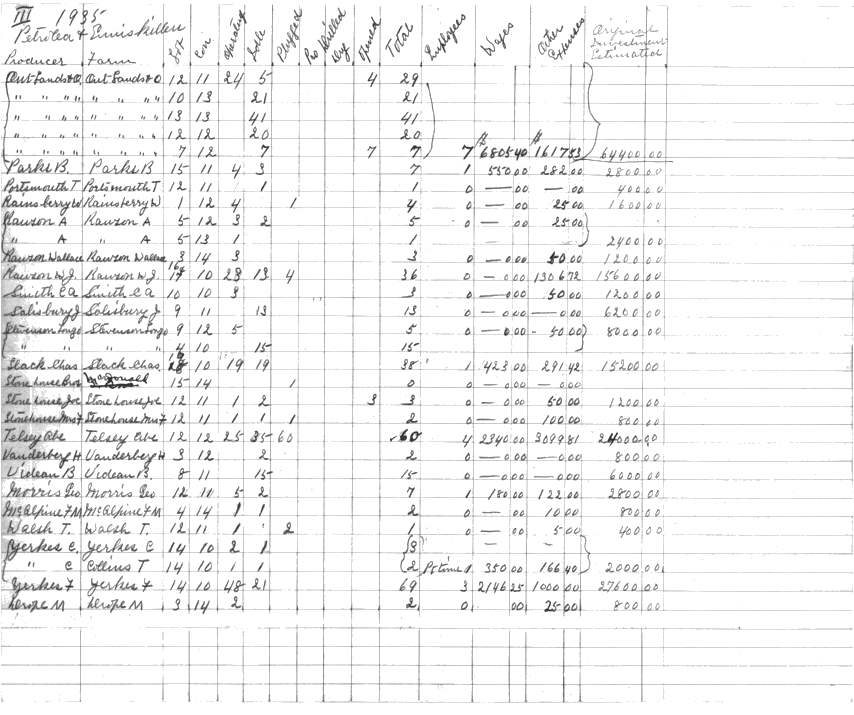 III 1935
Petrolea & Enniskillen
Producer Farm Lot Con. Operated Idle Plugged No Drilled Dry Opened Total Employees Wages Other Expenses Original Investment Estimated
Out Lands & O. Out Lands & O 12 11 24 5 4 29
" " " " " " " " 10 13 21 21
" " " " " " " " 13 13 41 41
" " " " " " " " 12 12 20 20
" " " " " " " " 7 12 7 7 7 7 $ 6805 40 $ 1617 53 64400 00
Parks B. Parks B 15 11 4 3 7 1 550 00 282 00 2800 00
Portsmouth T Portsmouth T 12 11 1 1 0 — 00 — 00 400 00
Rainsberry W Rainsberry W 1 12 4 1 4 0 — 00 25 00 1600 00
Rawson A Rawson A 5 12 3 2 5 0 — 00 25 00
" A " A 5 13 1 1 — — 2400 00
Rawson Wallace Rawson Wallace 3 14 3 3 0 — 00 50 00 1200 00
Rawson W.J. Rawson W.J. 10 23 13 4 36 0 — 00 1306 72 15600 00
Smith C A Smith C A 10 10 3 3 0 — 00 50 00 1200 00
Salisbury J Salisbury J 9 11 13 13 0 — 00 — 00 6200 00
Stevenson Stevenson 9 12 5 5 0 — 00 - 50 00 8000 00
" " " " 4 10 15 15
Slack Chas Slack Chas 10 19 19 38 1 423 00 291 42 15200 00
Stonehouse Bros McDonald 15 14 1 0 0 — 00 — 00
Stonehouse Joe Stonehouse Joe 12 11 1 2 3 3 0 — 00 50 00 1200 00
Stonehouse Mrs F Stonehouse Mrs F 12 11 1 1 1 2 0 — 00 100 00 800 00
Telsey Abe Telsey Abe 12 12 25 35 60 60 4 2340 00 3099 81 24000 00
Vanderberg H Vanderberg H 3 12 2 2 0 — 00 — 00 800 00
Videan B Videan B. 8 11 15 15 0 — 00 — 00 6000 00
Morris Geo Morris Geo 12 11 5 2 7 1 180 00 122 00 2800 00
McAlpine F M McAlpine F M 4 14 1 1 2 0 — 00 10 00 800 00
Walsh T. Walsh T. 12 11 1 2 1 0 — 00 5 00 400 00
Yerkes C. Yerkes C 14 10 2 1 3 — —
" C Collins T 14 10 1 1 2 Pt time 1 350 00 166 40 2000 00
Yerkes F Yerkes F 14 10 48 21 69 3 2146 25 1000 00 27600 00
M M 3 14 2 2 0 00 25 00 800 00